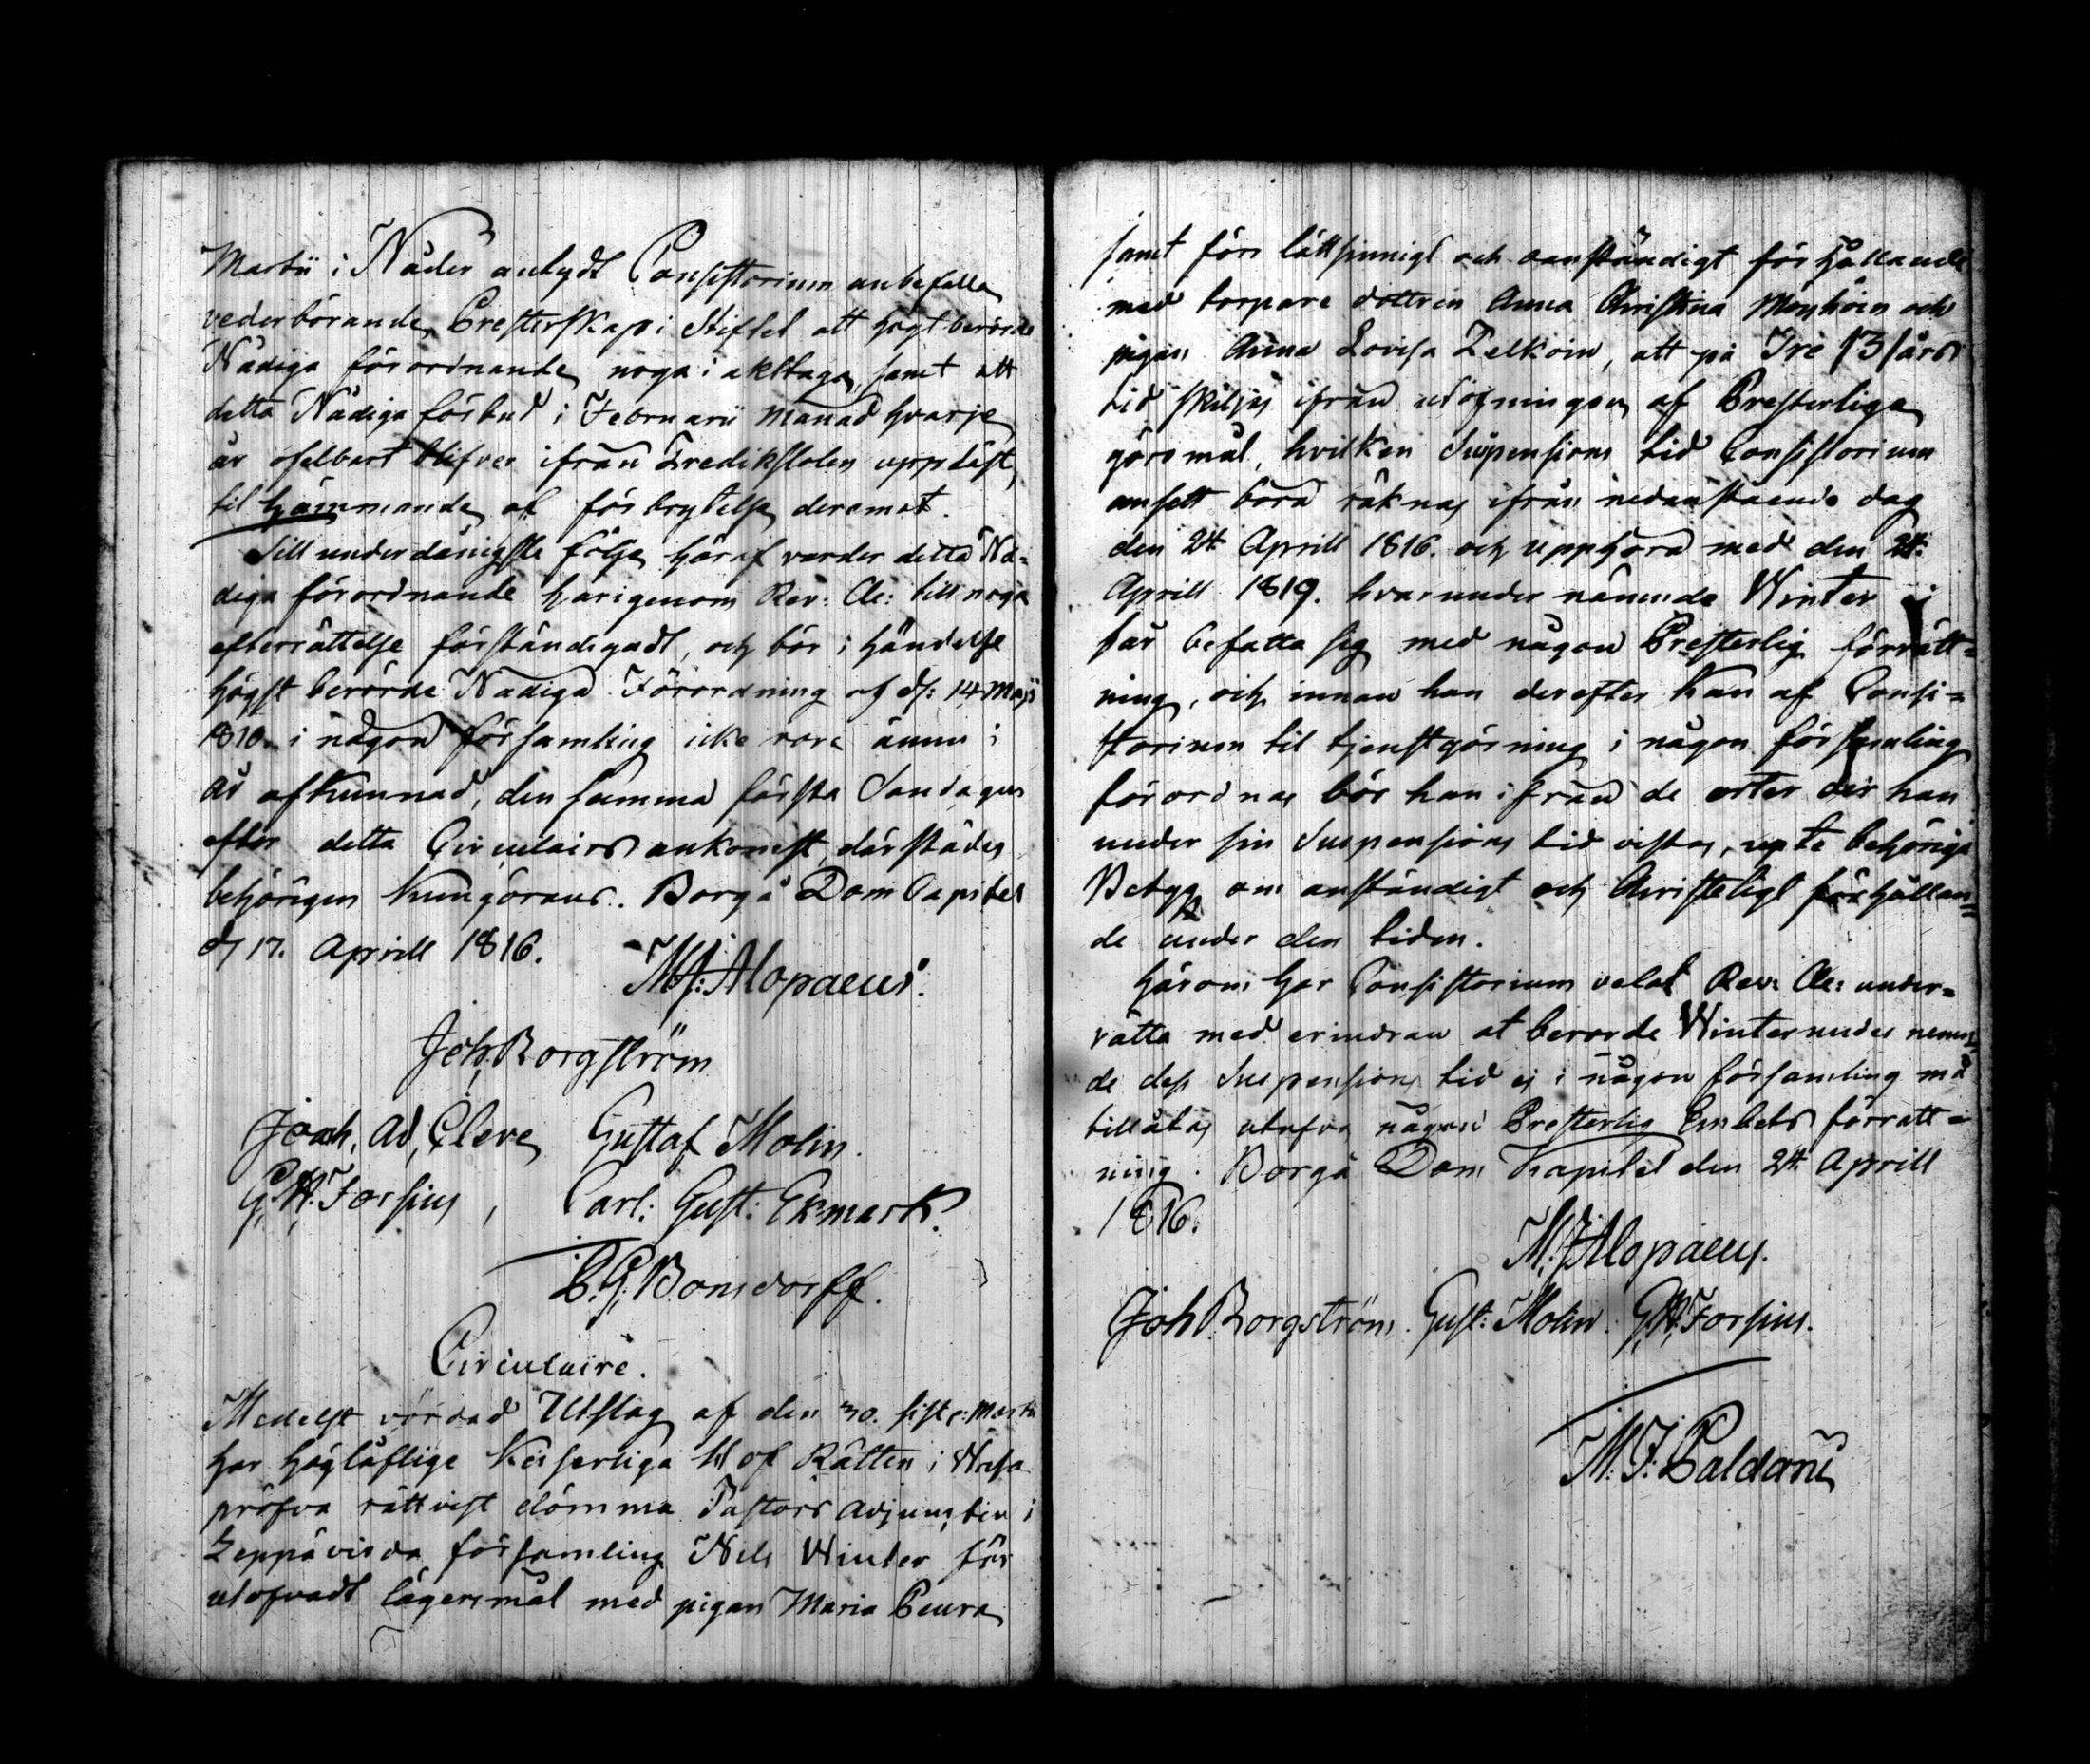 Martii i Nåder anbydt Consistorium anbefalla
vederbörande Presterskap i Stiftet att högtberörde
Nådiga förordnande noga i akttaga, samt att
detta Nådiga förbud i Februarii månad hvarje
år ofelbart blifver ifrån Predikstolen uppläst,
til hämmande af förbrytelse deremot.
Till underdånigste följe häraf varder detta Nå-
diga förordnande harigenom Rev: Cle: till noga
efterrättelse förständigadt, och bör i händelse
högst berörde Nådiga Förordning af d: 14 Maji
1810. i någon församling icke vore ännu i
år afkunnad, den samma första Söndagen
efter detta Circulairs ankomst, därstädes
behörigen kungöras. Borgå Dom Capitel
d 17. Aprill 1816.
M: Alopaeus.
Joh. Borgström
Joach. Ad, Cleve Gustaf Molin.
G. W. Forsius, Carl: Gust: Ekmark.
C. G. Bonsdorff.
Circulaire.
Medelst vördad Utslag af den 30. sistl: Martii
har höglåflige Keiserliga Hof Rätten i Wasa
pröfva rättvist dömma Pastors Adjuncten i
Leppävirda församling Nils Winter för
utöfvadt lägersmål med pigan Maria Peura
samt före lättsinnigt och oanständigt förhållande
med torpare dottren Anna Christina Mönköin och
pigan Anna Lovisa Zelkoin, att på Tre /3/ års
tid skiljas ifrån utöfningen af Presterliga
göromål, hvilken Suspensions tid Consistorium
ansett böra räknas ifrån nedanstående dag
den 24. Aprill 1816. och upphöra med den 24.
Aprill 1819. hvarunder nämnde Winter ej
får befatta sig med någon Presterlig förrätt=
ning, och innan han derefter kan af Consi=
storium til tjenstgörning i någon församling
förordnas bör han ifrån de orter der han
under sin Suspensions tid vistas, upte behöriga
Betyg om anständigt och Christeligt förhållan=
de under den tiden.
Härom har Consistorium velat Rev: Cle: under=
rätta med erindran at berorde Winter under nemn=
de dess Suspensions tid ej i någon församling må
tillåtas utöfva någon Presterlig Embets förrätt=
ning. Borgå Dom Kapitel den 24. Aprill
1816.
M: J. Alopaeus.
Joh Borgström. Gust: Molin. G. W. Forsius.
M: J: Paldani